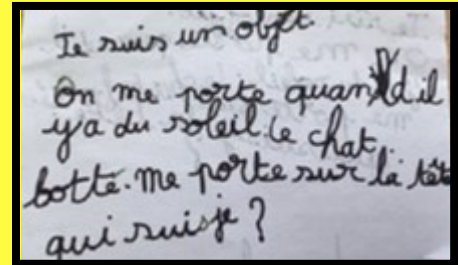 Je suis un objet.
On me porte quand il
y a du soleil le chat
botté. me porte sur la tête
qui suisje ?